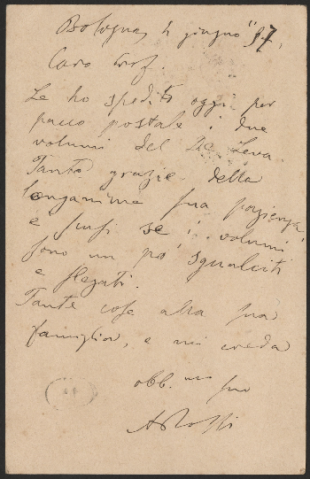 Bologna, 4 giugno "97,
Caro Prof.
Le ho spedito oggi per
pacco postale i due
volumi del De Leva.
Tante grazie della
longanime sua pazienza
e scusi se i volumi
sono un po' sgualciti
e slegati.
Tante cose alla sua
famiglia, e mi creda
obb.mo suo
A Rossi